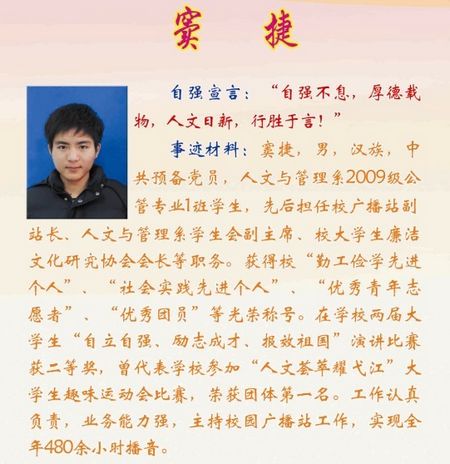 窦 捷
自强宣言：“自强不息，厚德载
物，人文日新，行胜于言！”
事迹材料：窦捷，男，汉族，中
共预备党员，人文与管理系2009级公
管专业1班学生，先后担任校广播站副
站长、人文与管理系学生会副主席、校大学生廉洁
文化研究协会会长等职务。获得校“勤工俭学先进
个人”、“社会实践先进个人”、“优秀青年志
愿者”、“优秀团员”等光荣称号。在学校两届大
学生“自立自强、励志成才、报效祖国”演讲比赛
获二等奖，曾代表学校参加“人文荟萃耀弋江”大
学生趣味运动会比赛，荣获团体第一名。工作认真
负责，业务能力强，主持校园广播站工作，实现全
年480余小时播音。